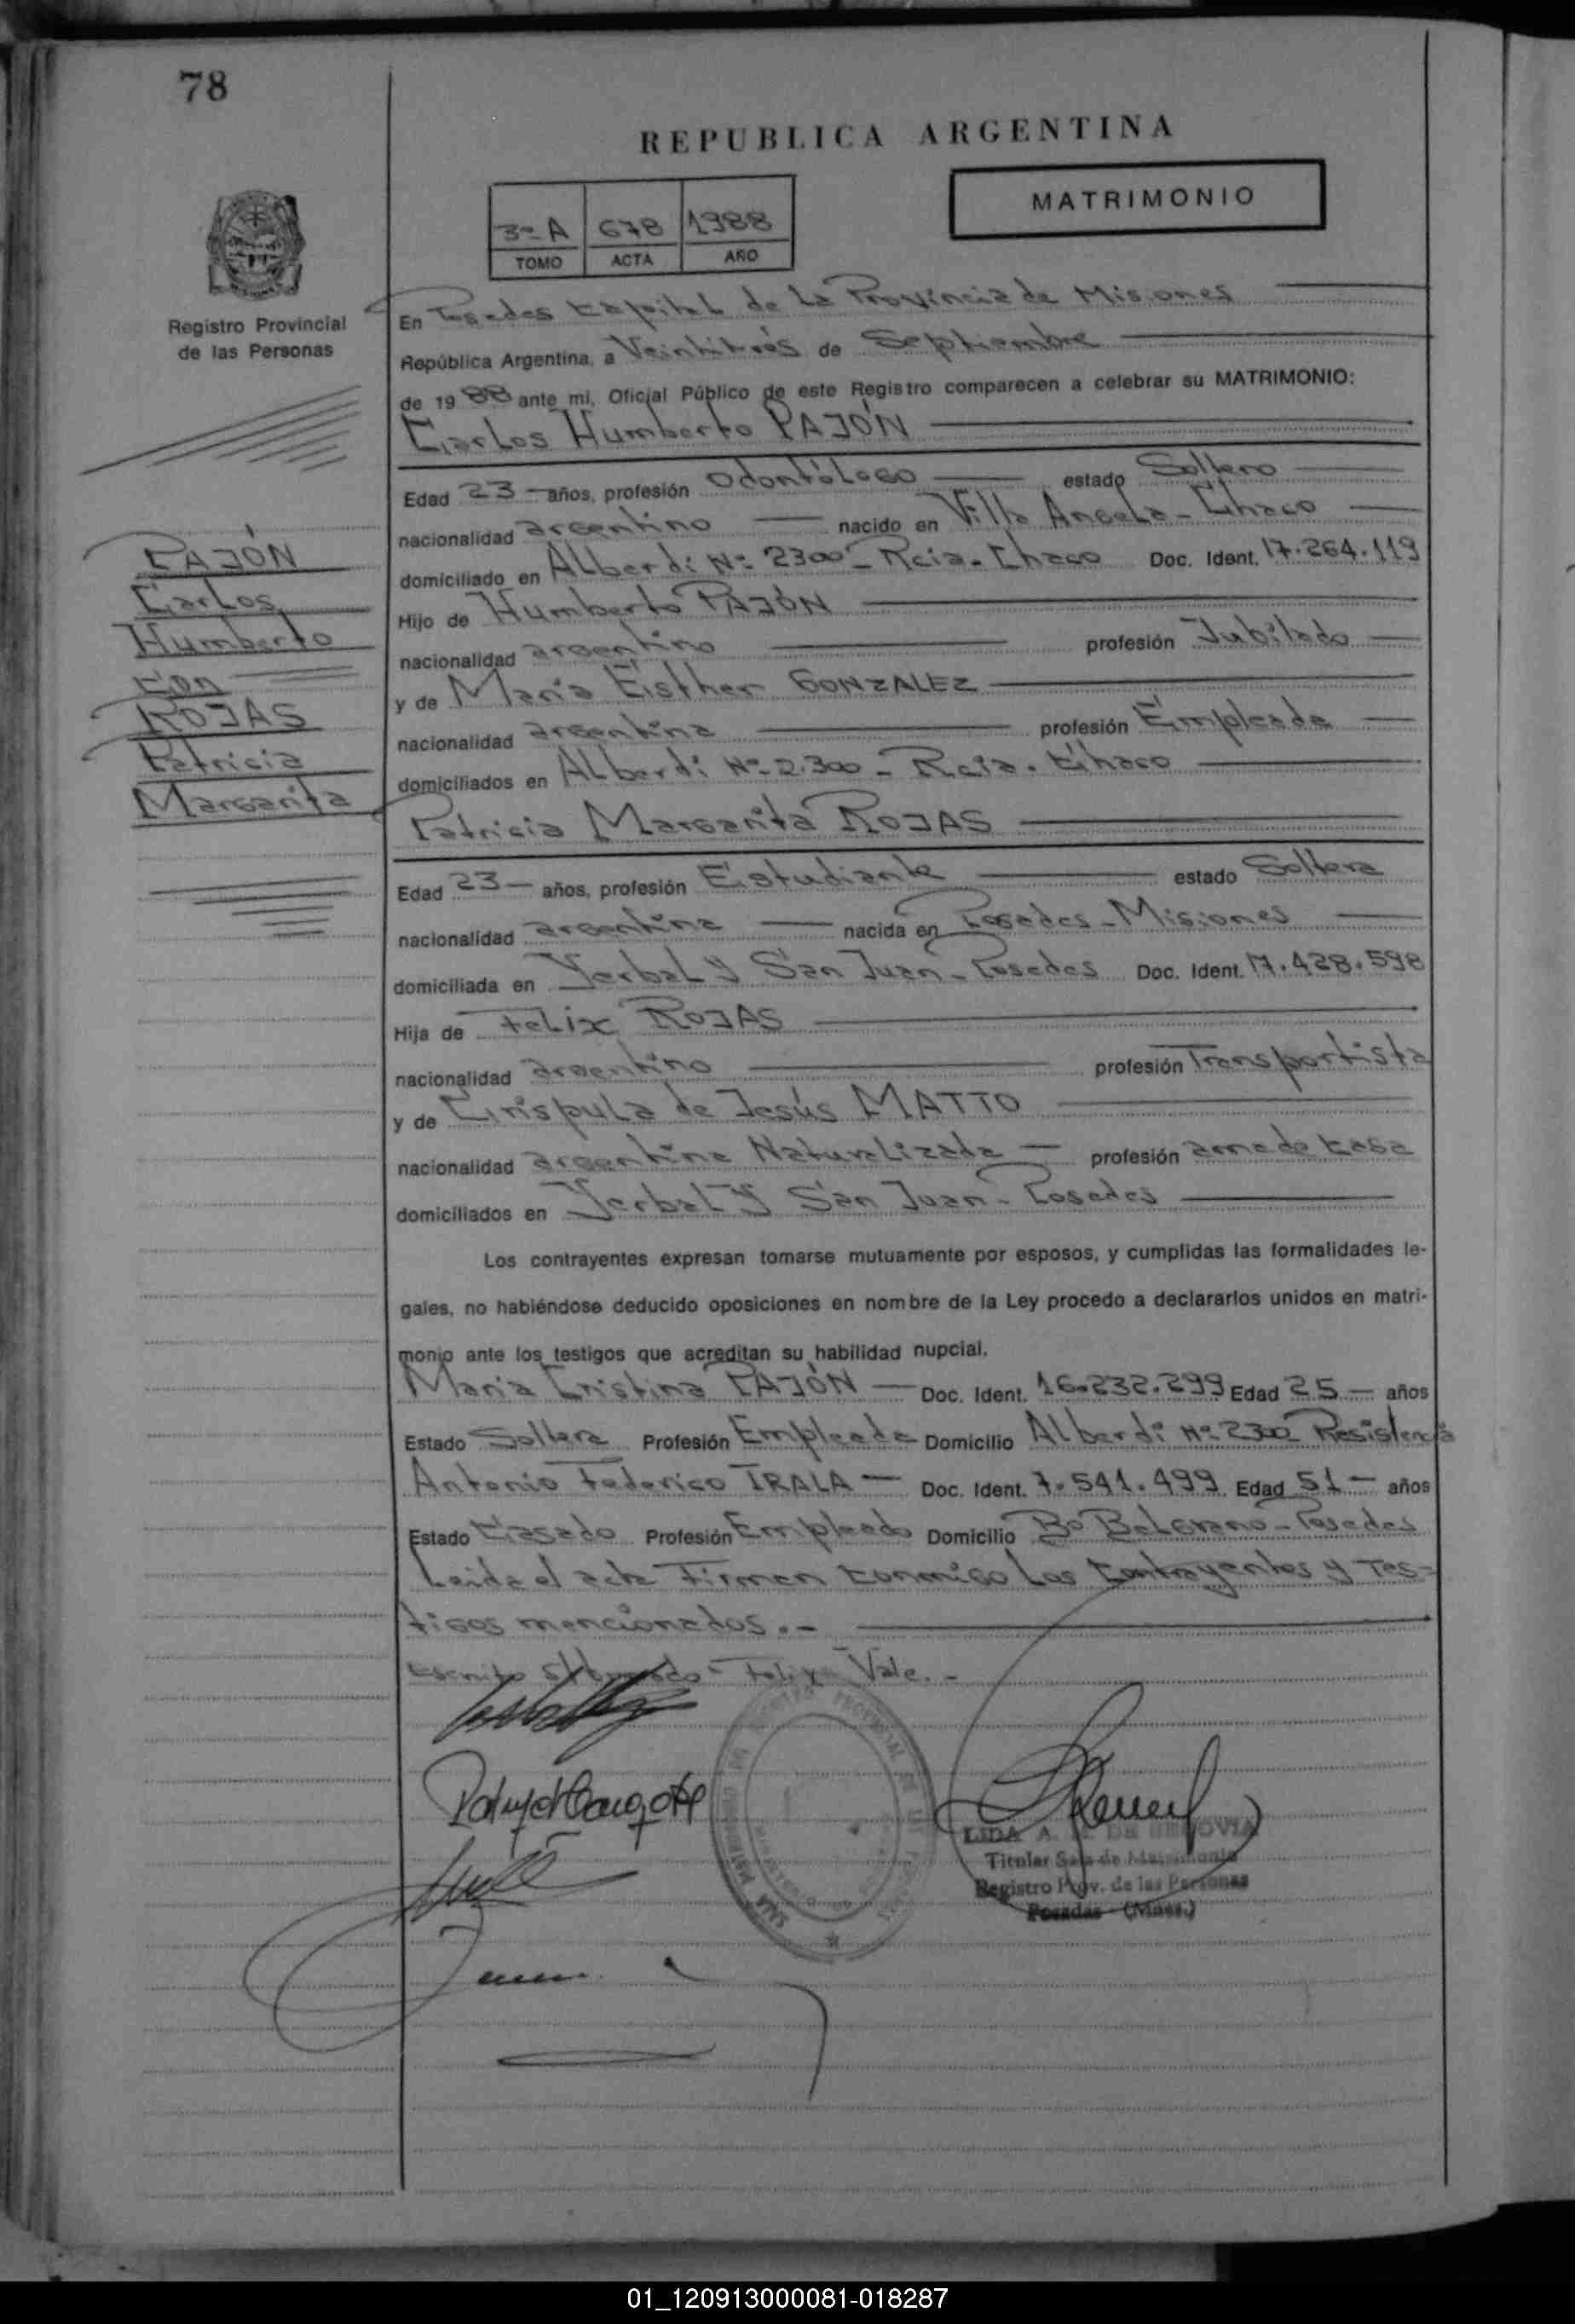 78
REPUBLICA ARGENTINA
MATRIMONIO
3º A 678 1988
TOMO ACTA AÑO
Registro Provincial
de las Personas
En Posadas Capital de la Provincia de Misiones
República Argentina, a Veintitrés de Septiembre
de 1988 ante mi, Oficial Público de este Registro comparecen a celebrar su MATRIMONIO:
Carlos Humberto PAJÓN
Edad 23 años, profesión Odontólogo estado Soltero
nacionalidad argentino nacido en Villa Angela - Chaco
domiciliado en Alberdi Nº 2300 - Rcia. Chaco Doc. Ident. 17.264.119
Hijo de Humberto PAJÓN
nacionalidad argentino profesión Jubilado
y de María Esther GONZALEZ
nacionalidad argentina profesión Empleada
domiciliados en Alberdi Nº 2.300 - Rcia. Chaco
Patricia Margarita ROJAS
PAJÓN
Carlos
Humberto
con
ROJAS
Patricia
Margarita
Edad 23 años, profesión Estudiante estado Soltera
nacionalidad argentina nacida en Posadas - Misiones
domiciliada en Yerbal y San Juan - Posadas Doc. Ident. 17.428.598
Hija de Felix ROJAS
nacionalidad argentino profesión Transportista
y de Crispula de Jesús MATTO
nacionalidad argentina Naturalizada profesión ama de casa
domiciliados en Yerbal y San Juan - Posadas
Los contrayentes expresan tomarse mutuamente por esposos, y cumplidas las formalidades le-
gales, no habiéndose deducido oposiciones en nombre de la Ley procedo a declararlos unidos en matri-
monio ante los testigos que acreditan su habilidad nupcial.
María Cristina PAJÓN Doc. Ident. 16.232.299 Edad 25 años
Estado Soltera Profesión Empleada Domicilio Alberdi Nº 2300 Resistencia
Antonio Federico IRALA Doc. Ident. 7.541.499 Edad 51 años
Estado Casado Profesión Empleado Domicilio Bº Belgrano - Posadas
Leida el acta Firman conmigo los contrayentes y tes-
tigos mencionados.-
Escrito s/borrado - Felix - Vale.-
LIDA A. DE SEGOVIA
Titular Sala de Matrimonio
Registro Prov. de las Personas
Posadas - (Mnes.)
01_120913000081-018287